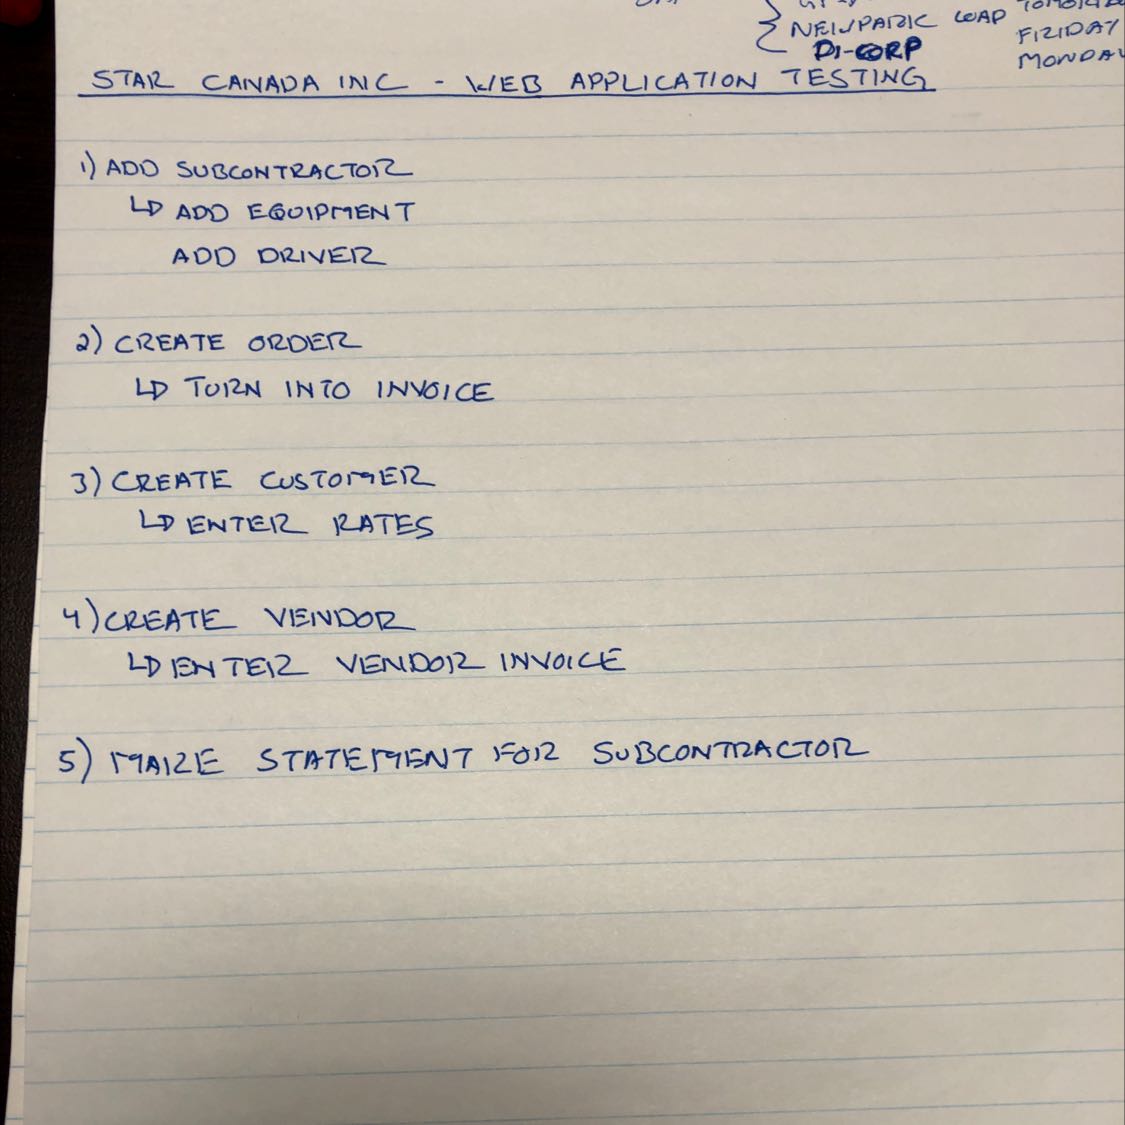 NEWPARK LOAD
FRIDAY
DI-CORP
MONDAY
STAR CANADA INC - WEB APPLICATION TESTING
1) ADD SUBCONTRACTOR
↳ ADD EQUIPMENT
ADD DRIVER
2) CREATE ORDER
↳ TURN INTO INVOICE
3) CREATE CUSTOMER
↳ ENTER RATES
4) CREATE VENDOR
↳ ENTER VENDOR INVOICE
5) MAKE STATEMENT FOR SUBCONTRACTOR